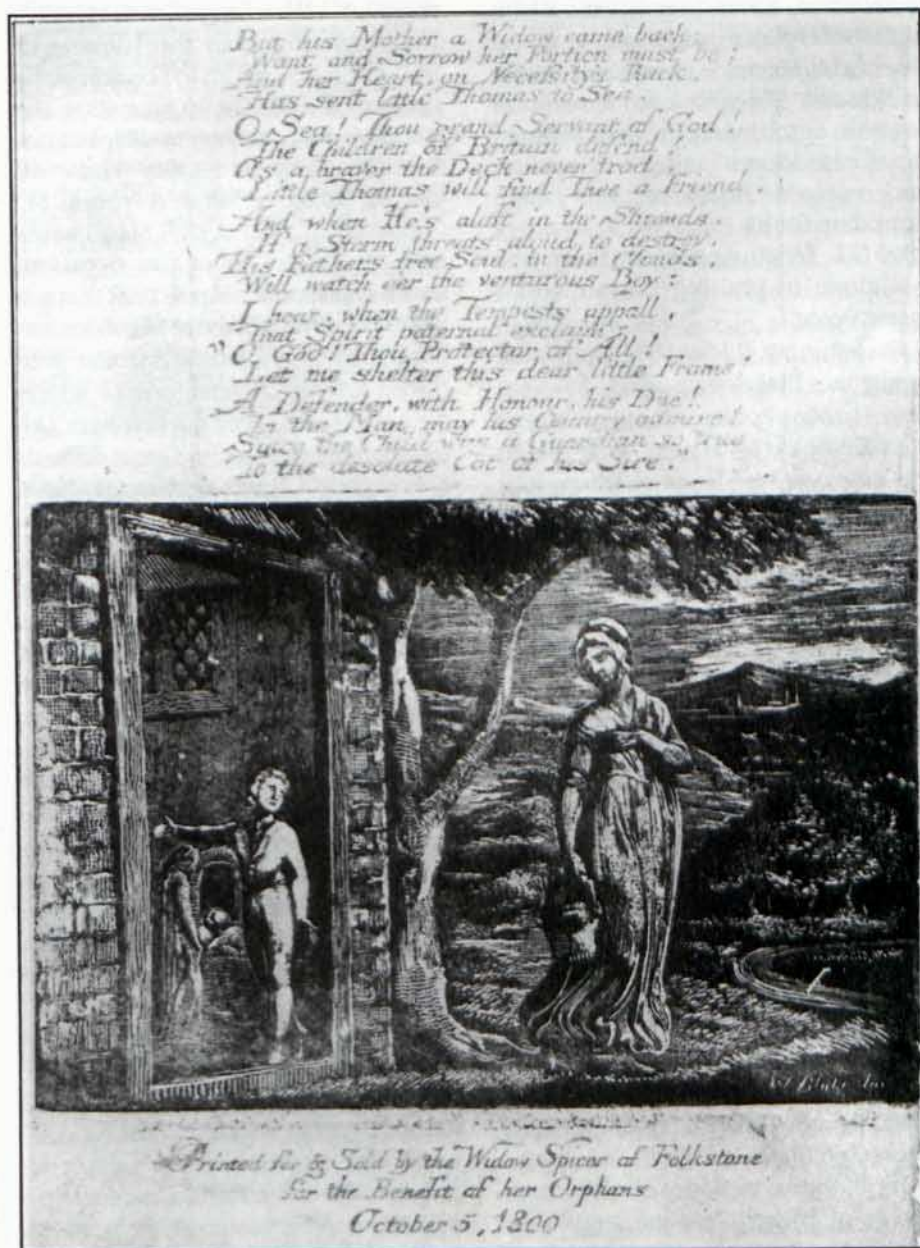 But his Mother a Widow came back;
Want and Sorrow her Portion must be;
And her Heart, on Necessitys Rack
Has sent little Thomas to Sea.
O Sea! Thou grand Servant of God!
The Children of Britain defend!
As a braver the Deck never trod
Little Thomas will find Thee a Friend.
And when He's aloft in the Shrouds.
If a Storm threats aloud, to destroy.
His Fathers free Soul in the Clouds.
Will watch oer the venturous Boy:
I hear, when the Tempests appall,
That Spirit paternal exclaim
"O God! Thou Protector of All!
Let me shelter this dear little Frame.
A Defender, with Honour, his Due!
In the Man, may his Country
Since the Child was a Guardian so true
To the desolate Cot of his Sire."
W Blake inv
Printed for & Sold by the Widow Spicer of Folkstone
for the Benefit of her Orphans
October 5, 1800